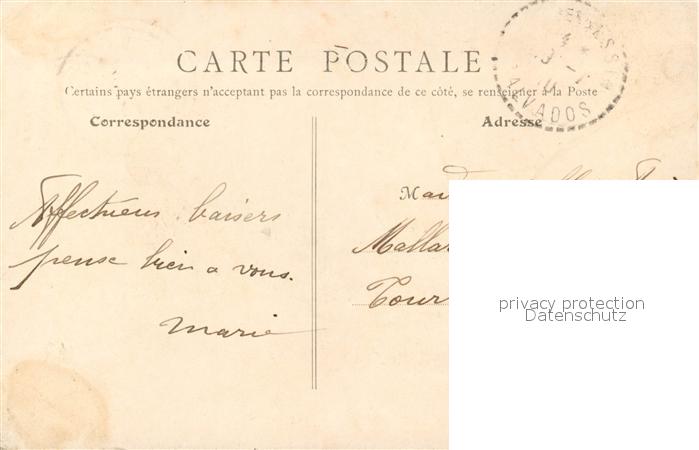 CARTE POSTALE
Certains pays étrangers n'acceptant pas la correspondance de ce côté, se renseigner à la Poste
Correspondance
Adresse
Affectueux baisers
pense bien a vous.
Marie
Mallar
Tour
privacy protection
Datenschutz